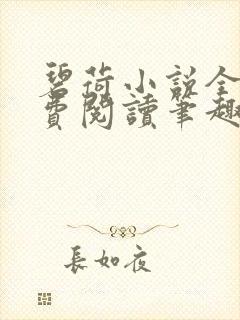 碧荷小說全
費閱讀筆趣
長如夜